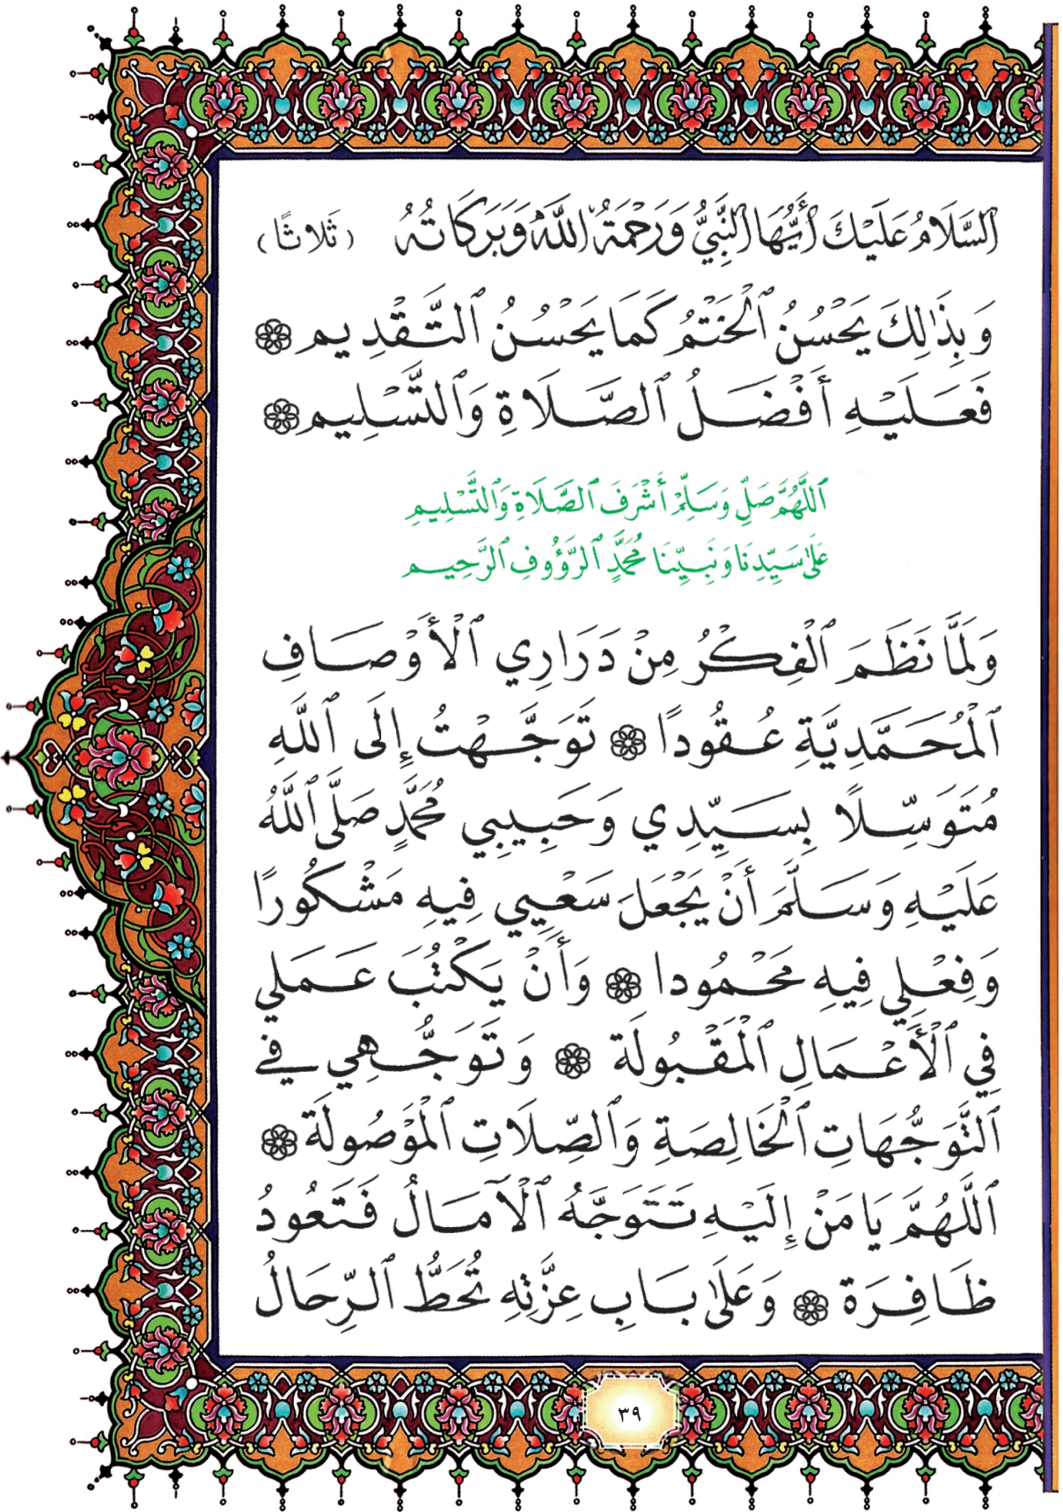 اَلسَّلَامُ عَلَيْكَ أَيُّهَا النَّبِيُّ وَرَحْمَةُ اللَّهِ وَبَرَكَاتُهُ (ثَلَاثًا)
وَبِذَٰلِكَ يَحْسُنُ ٱلْخَتْمُ كَمَا يَحْسُنُ ٱلتَّقْدِيمِ ۞
فَعَلَيْهِ أَفْضَلُ ٱلصَّلَاةِ وَٱلتَّسْلِيمِ ۞
ٱللَّهُمَّ صَلِّ وَسَلِّمْ أَشْرَفَ ٱلصَّلَاةِ وَٱلتَّسْلِيمِ
عَلَىٰ سَيِّدِنَا وَنَبِيِّنَا مُحَمَّدٍ ٱلرَّؤُوفِ ٱلرَّحِيمِ
وَلَمَّا نَظَمَ ٱلْفِكْرُ مِنْ دَرَارِي ٱلْأَوْصَافِ
ٱلْمُحَمَّدِيَّةِ عُقُودًا ۞ تَوَجَّهْتُ إِلَى ٱللَّهِ
مُتَوَسِّلًا بِسَيِّدِي وَحَبِيبِي مُحَمَّدٍ صَلَّى ٱللَّهُ
عَلَيْهِ وَسَلَّمَ أَنْ يَجْعَلَ سَعْيِي فِيهِ مَشْكُورًا
وَفِعْلِي فِيهِ مَحْمُودا ۞ وَأَنْ يَكْتُبَ عَمَلِي
فِي ٱلْأَعْمَالِ ٱلْمَقْبُولَة ۞ وَتَوَجُّهِي فِي
ٱلتَّوَجُّهَاتِ ٱلْخَالِصَةِ وَٱلصِّلَاتِ ٱلْمَوْصُولَة ۞
ٱللَّهُمَّ يَا مَنْ إِلَيْهِ تَتَوَجَّهُ ٱلْآمَالُ فَتَعُودُ
ظَافِرَة ۞ وَعَلَىٰ بَابِ عِزَّتِهِ تُحَطُّ ٱلرِّحَالُ
٣٩